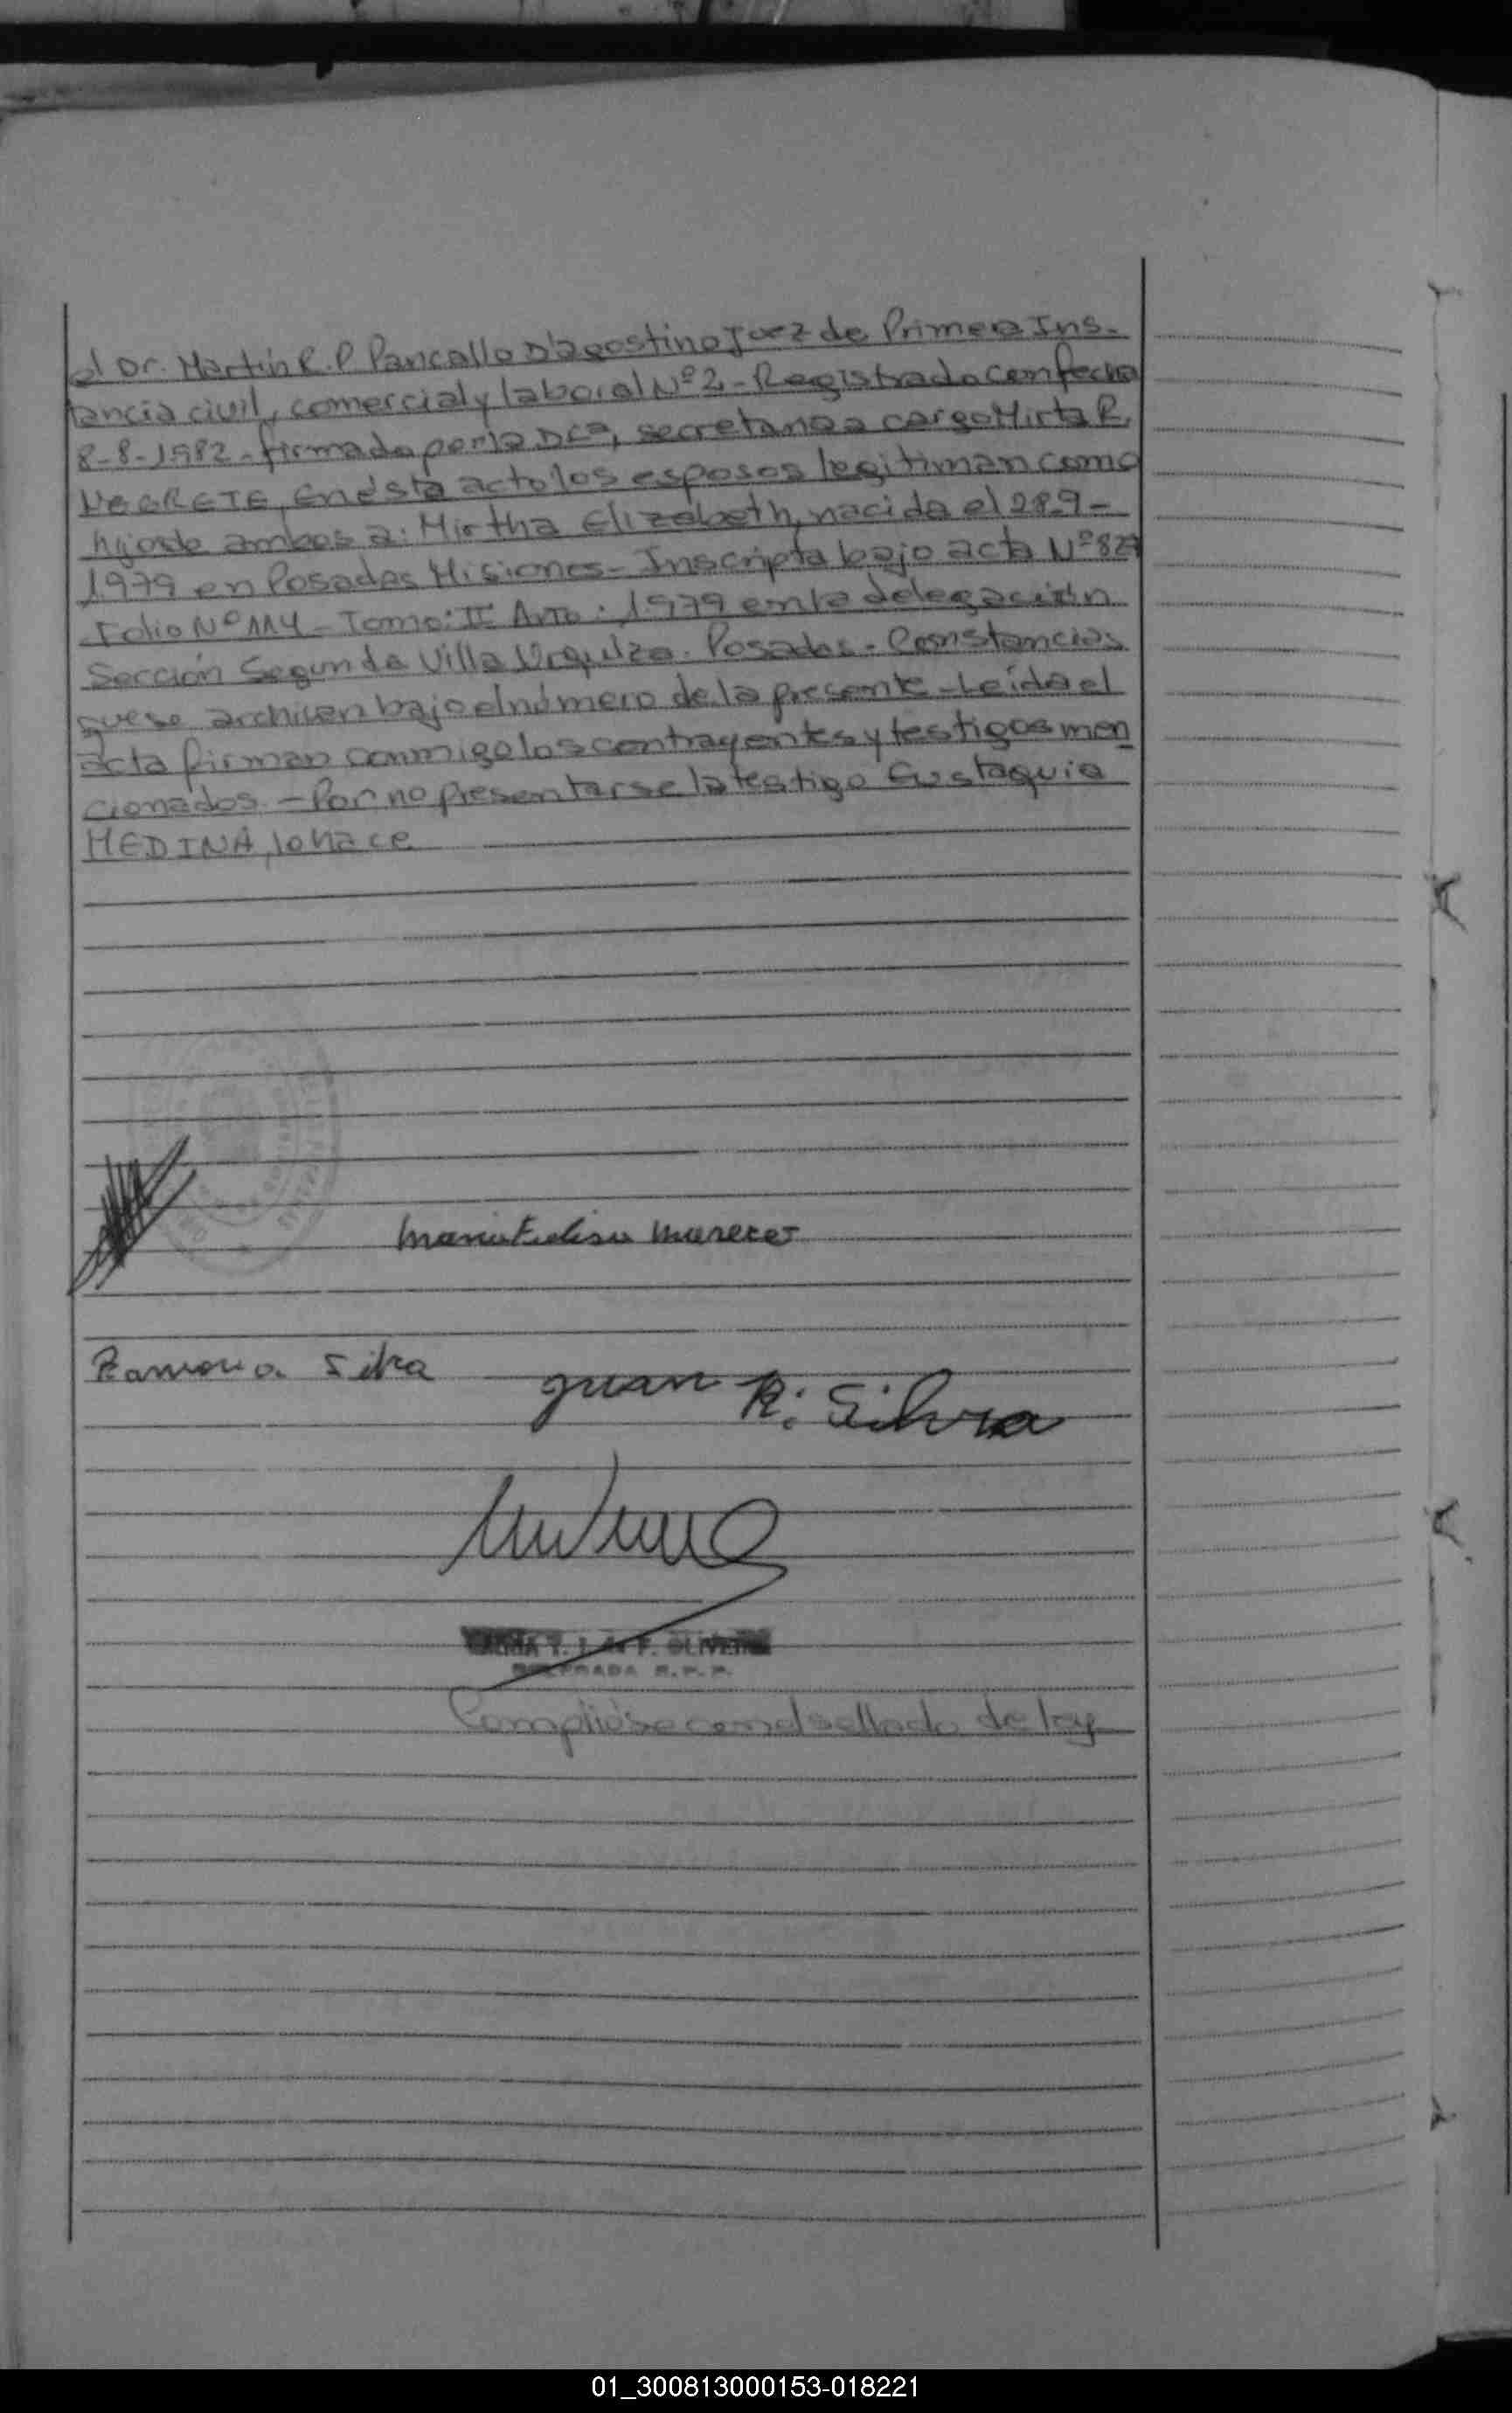 el Dr. Martín R. P. Pancallo D'agostino Juez de Primera Ins-
tancia civil, comercial y laboral Nº 2 - Registrado con fecha
8-8-1982 - firmada por la Dcª, secretaria a cargo Mirta R.
NEGRETE, En ésta acto los esposos legitiman como
hijo de ambos a: Mirtha Elizabeth, nacida el 28-9-
1979 en Posadas Misiones - Inscripta bajo acta Nº 827
Folio Nº 114 - Tomo: II Año: 1979 en la delegación
Sección Segunda Villa Urquiza - Posadas - Constancias
que se archivan bajo el número de la presente - Leída el
acta firman conmigo los contrayentes y testigos men
cionados. - Por no presentarse la testigo Eustaquia
MEDINA, lo hace
Maria Felisa Mareces
Ramona Silva
Juan R. Silva
F. OLIVEIRA
R. P. P.
Complióse con el sellado de ley
01_300813000153-018221